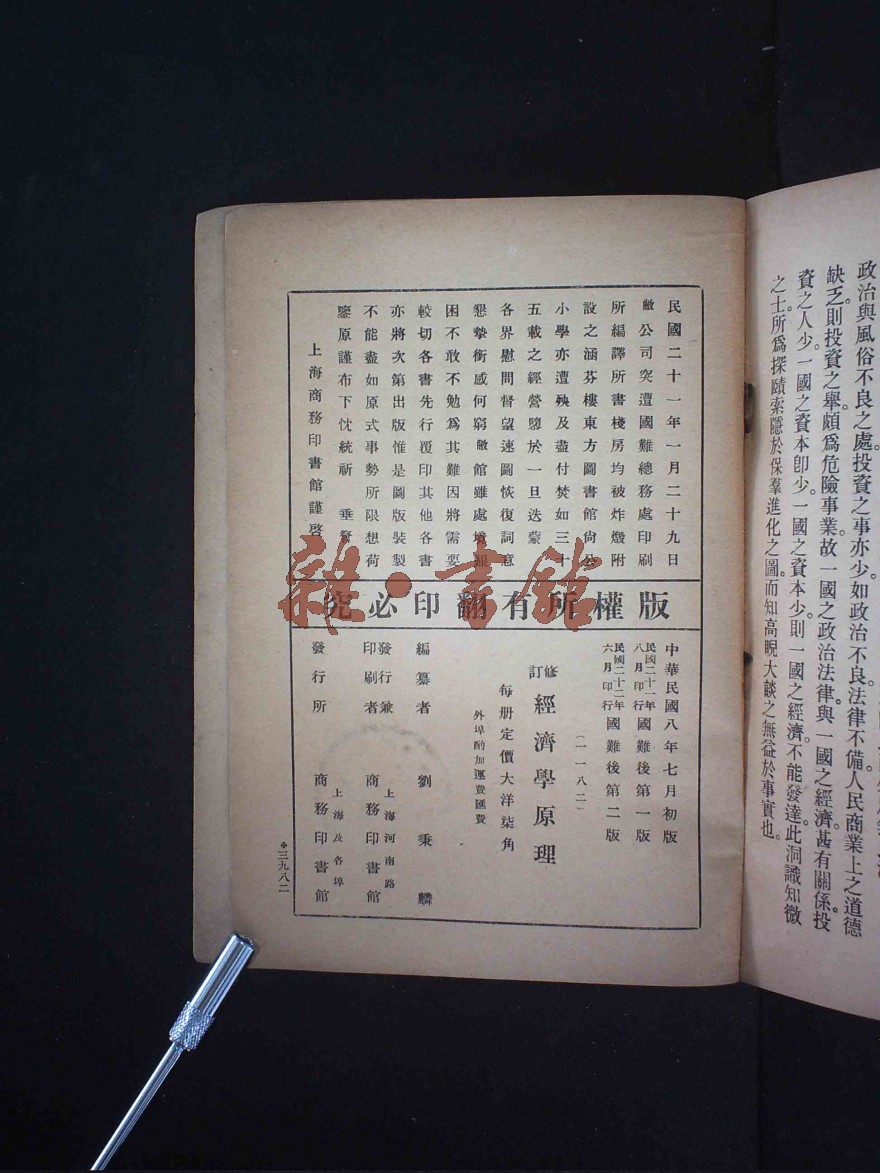 政治與風俗不良之處。投資之事亦少。如政治不良。法律不備。人民商業上之道德
缺乏。則投資之舉。頗爲危險事業。故一國之政治法律。與一國之經濟。甚有關係。投
資之人少。一國之資本卽少。一國之資本少。則一國之經濟。不能發達。此洞識知微
之士。所爲探賾索隱於保羣進化之圖。而知高睨大談之無益於事實也。
民國二十一年一月二十九日
敝公司突遭國難總務處印刷
所編譯所書棧房均被炸燬附
設之涵芬樓東方圖書館尙公
小學亦遭殃及盡付焚如三十
五載之經營隳於一旦迭蒙
各界慰問督望速圖恢復詞意
懇摯銜感何窮敝館雖處境艱
困不敢不勉爲其難因將需要
較切各書先行覆印其他各書
亦將次第出版惟是圖版裝製
不能盡如原式事勢所限想荷
鑒原謹布下忱統祈 垂詧
上海商務印書館謹啓
版權所有翻印必究
中華民國八年七月初版
民國二十一年八月印行國難後第一版
民國二十二年六月印行國難後第二版
(一一八二)
修訂 經濟學原理
每册定價大洋柒角
外埠酌加運費匯費
編纂者 劉秉麟
發行兼印刷者 上海河南路 商務印書館
發行所 上海及各埠 商務印書館
三九八二
雜·書館